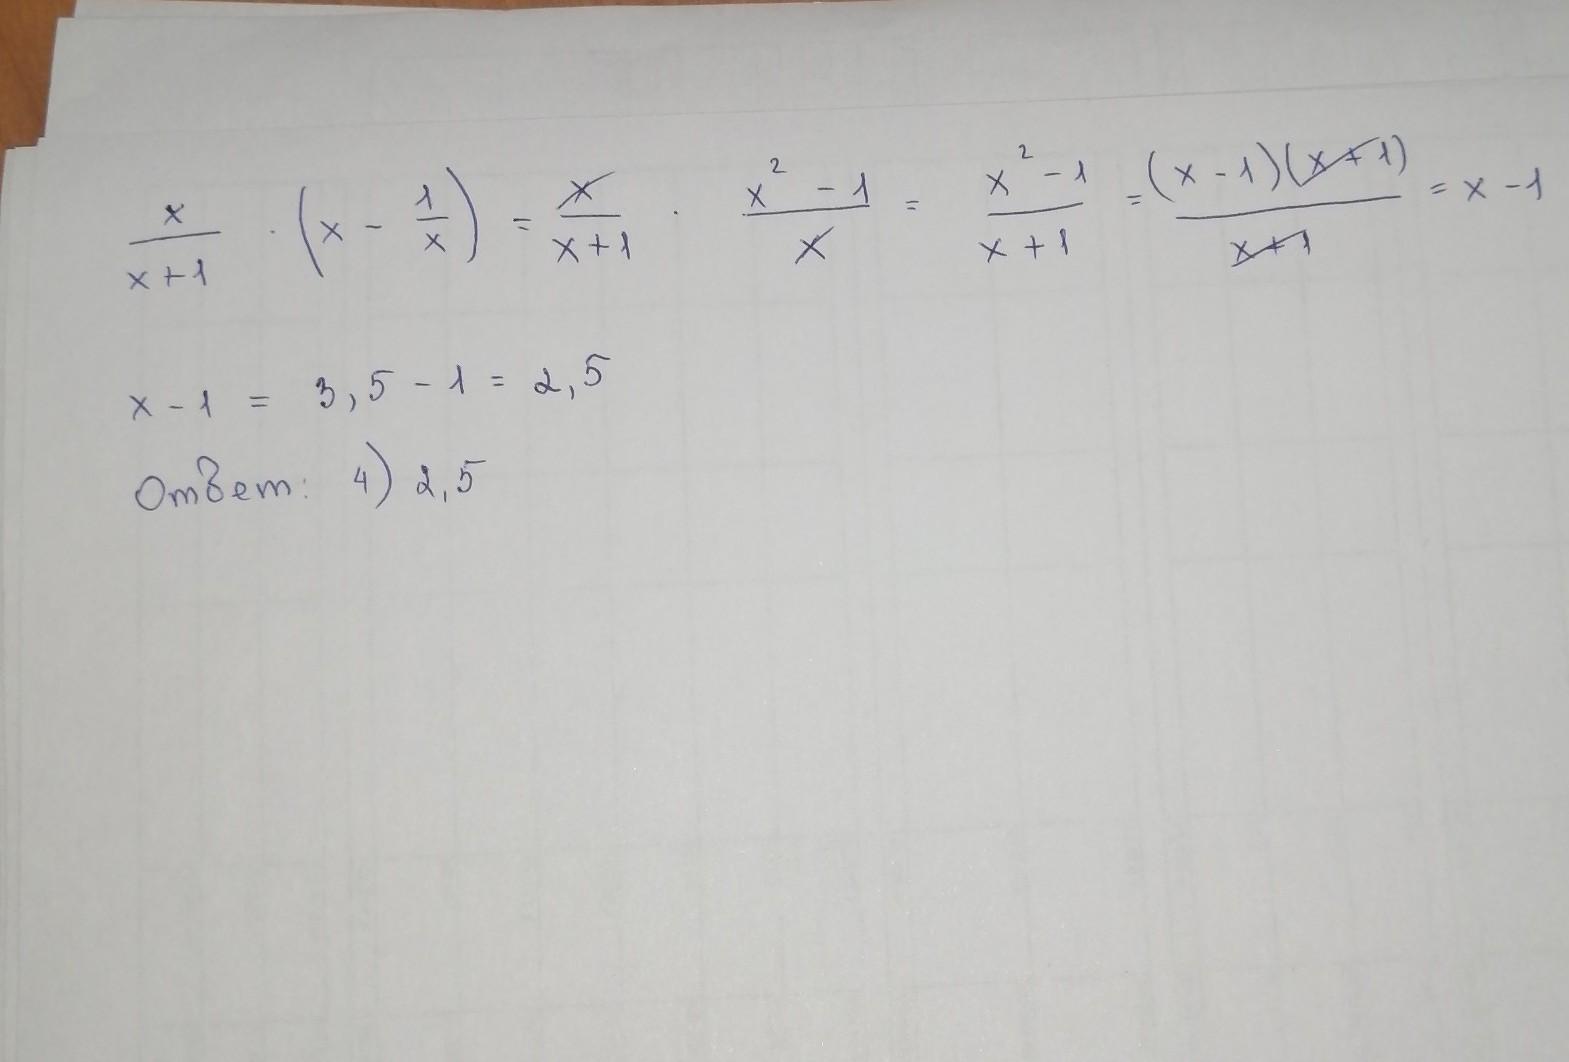 x/(x+1) · (x - 1/x) = x/(x+1) · (x² - 1)/x = (x² - 1)/(x + 1) = (x - 1)(x + 1)/(x + 1) = x - 1
x - 1 = 3,5 - 1 = 2,5
Ответ: 4) 2,5